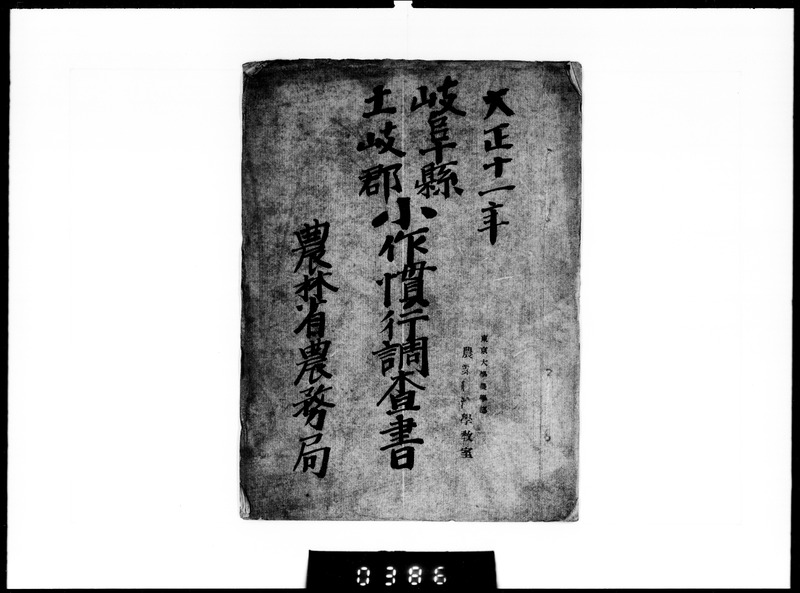 大正十一年
岐阜縣
土岐郡
小作慣行調査書
農林省農務局
東京大學農學部
農 學教室
0386